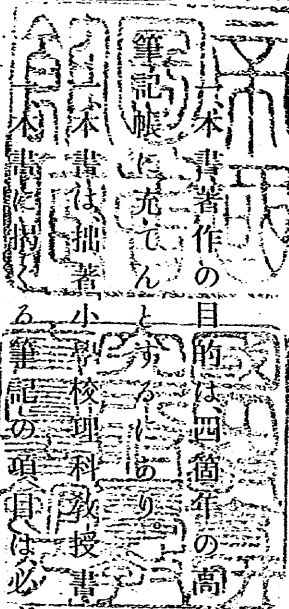 一、本書著作の目的は、四箇年の高
筆記帳に充てんとするにあり。
一、本書は、拙著小學校理科教授書
一、本書に掲くる筆記の項目は必